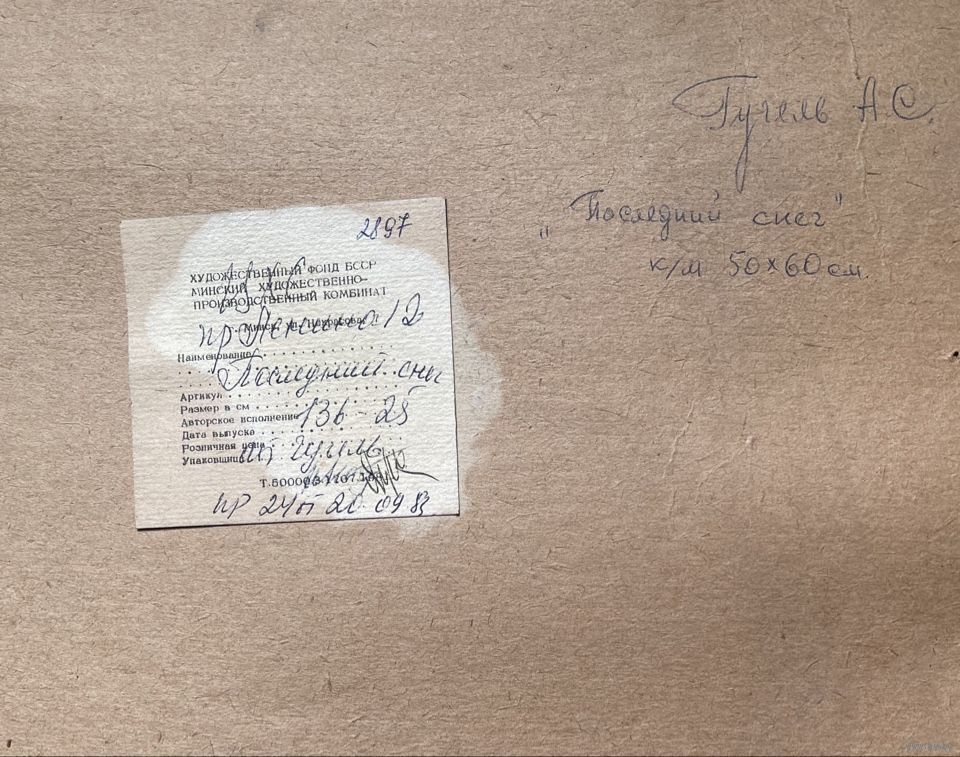 Гугель А.С.
„Последний снег"
к/м 50×60 см.
2897
ХУДОЖЕСТВЕННЫЙ ФОНД БССР
МИНСКИЙ ХУДОЖЕСТВЕННО-
ПРОИЗВОДСТВЕННЫЙ КОМБИНАТ
г. Минск, ул. Некрасова,
пр Ленина 12
Наименование
Последний снег
Артикул
Размер в см
Авторское исполнение 136-25
Дата выпуска
Розничная цена
Упаковщица Гугель
Т. 50000
пр 24 20.09.83